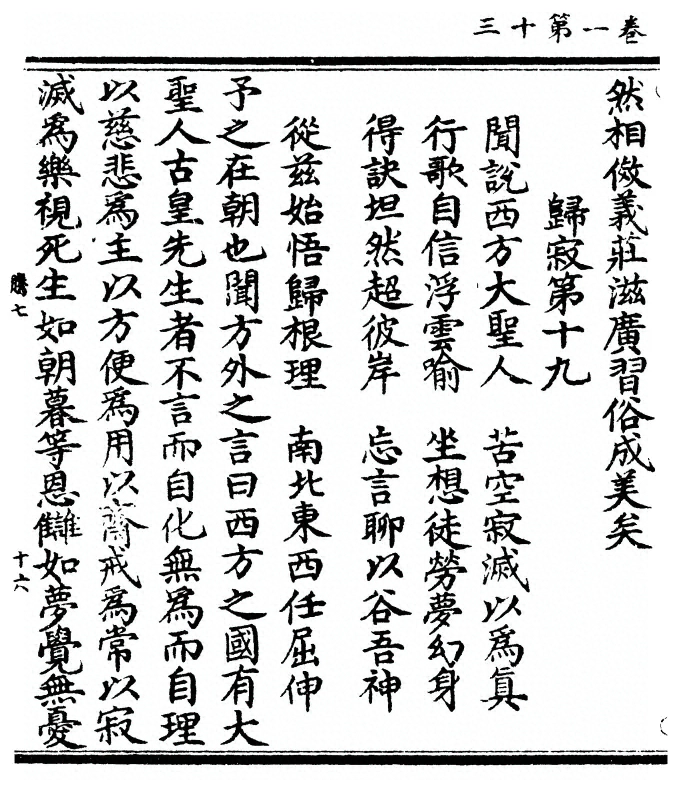 三十第一卷
然相倣義莊滋廣習俗成美矣
歸寂第十九
聞說西方大聖人　苦空寂滅以爲眞
行歌自信浮雲喻　坐想徒勞夢幻身
得訣坦然超彼岸　忘言聊以谷吾神
從茲始悟歸根理　南北東西任屈伸
予之在朝也聞方外之言曰西方之國有大
聖人古皇先生者不言而自化無爲而自理
以慈悲爲主以方便爲用以齋戒爲常以寂
滅爲樂視死生如朝暮等恩讎如夢覺無憂
騰七
十六